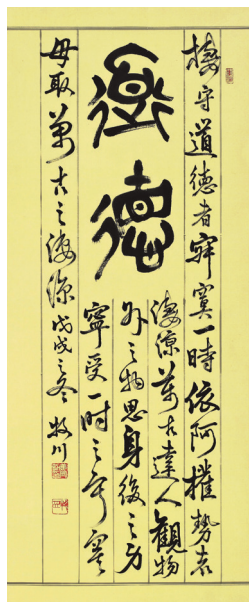 棲守道德者寂寞一時依阿權勢者
道德
凄凉萬古達人觀物
外之物思身後之身
寧受一時之寂寞
毋取萬古之凄凉 戊戌之冬 牧川